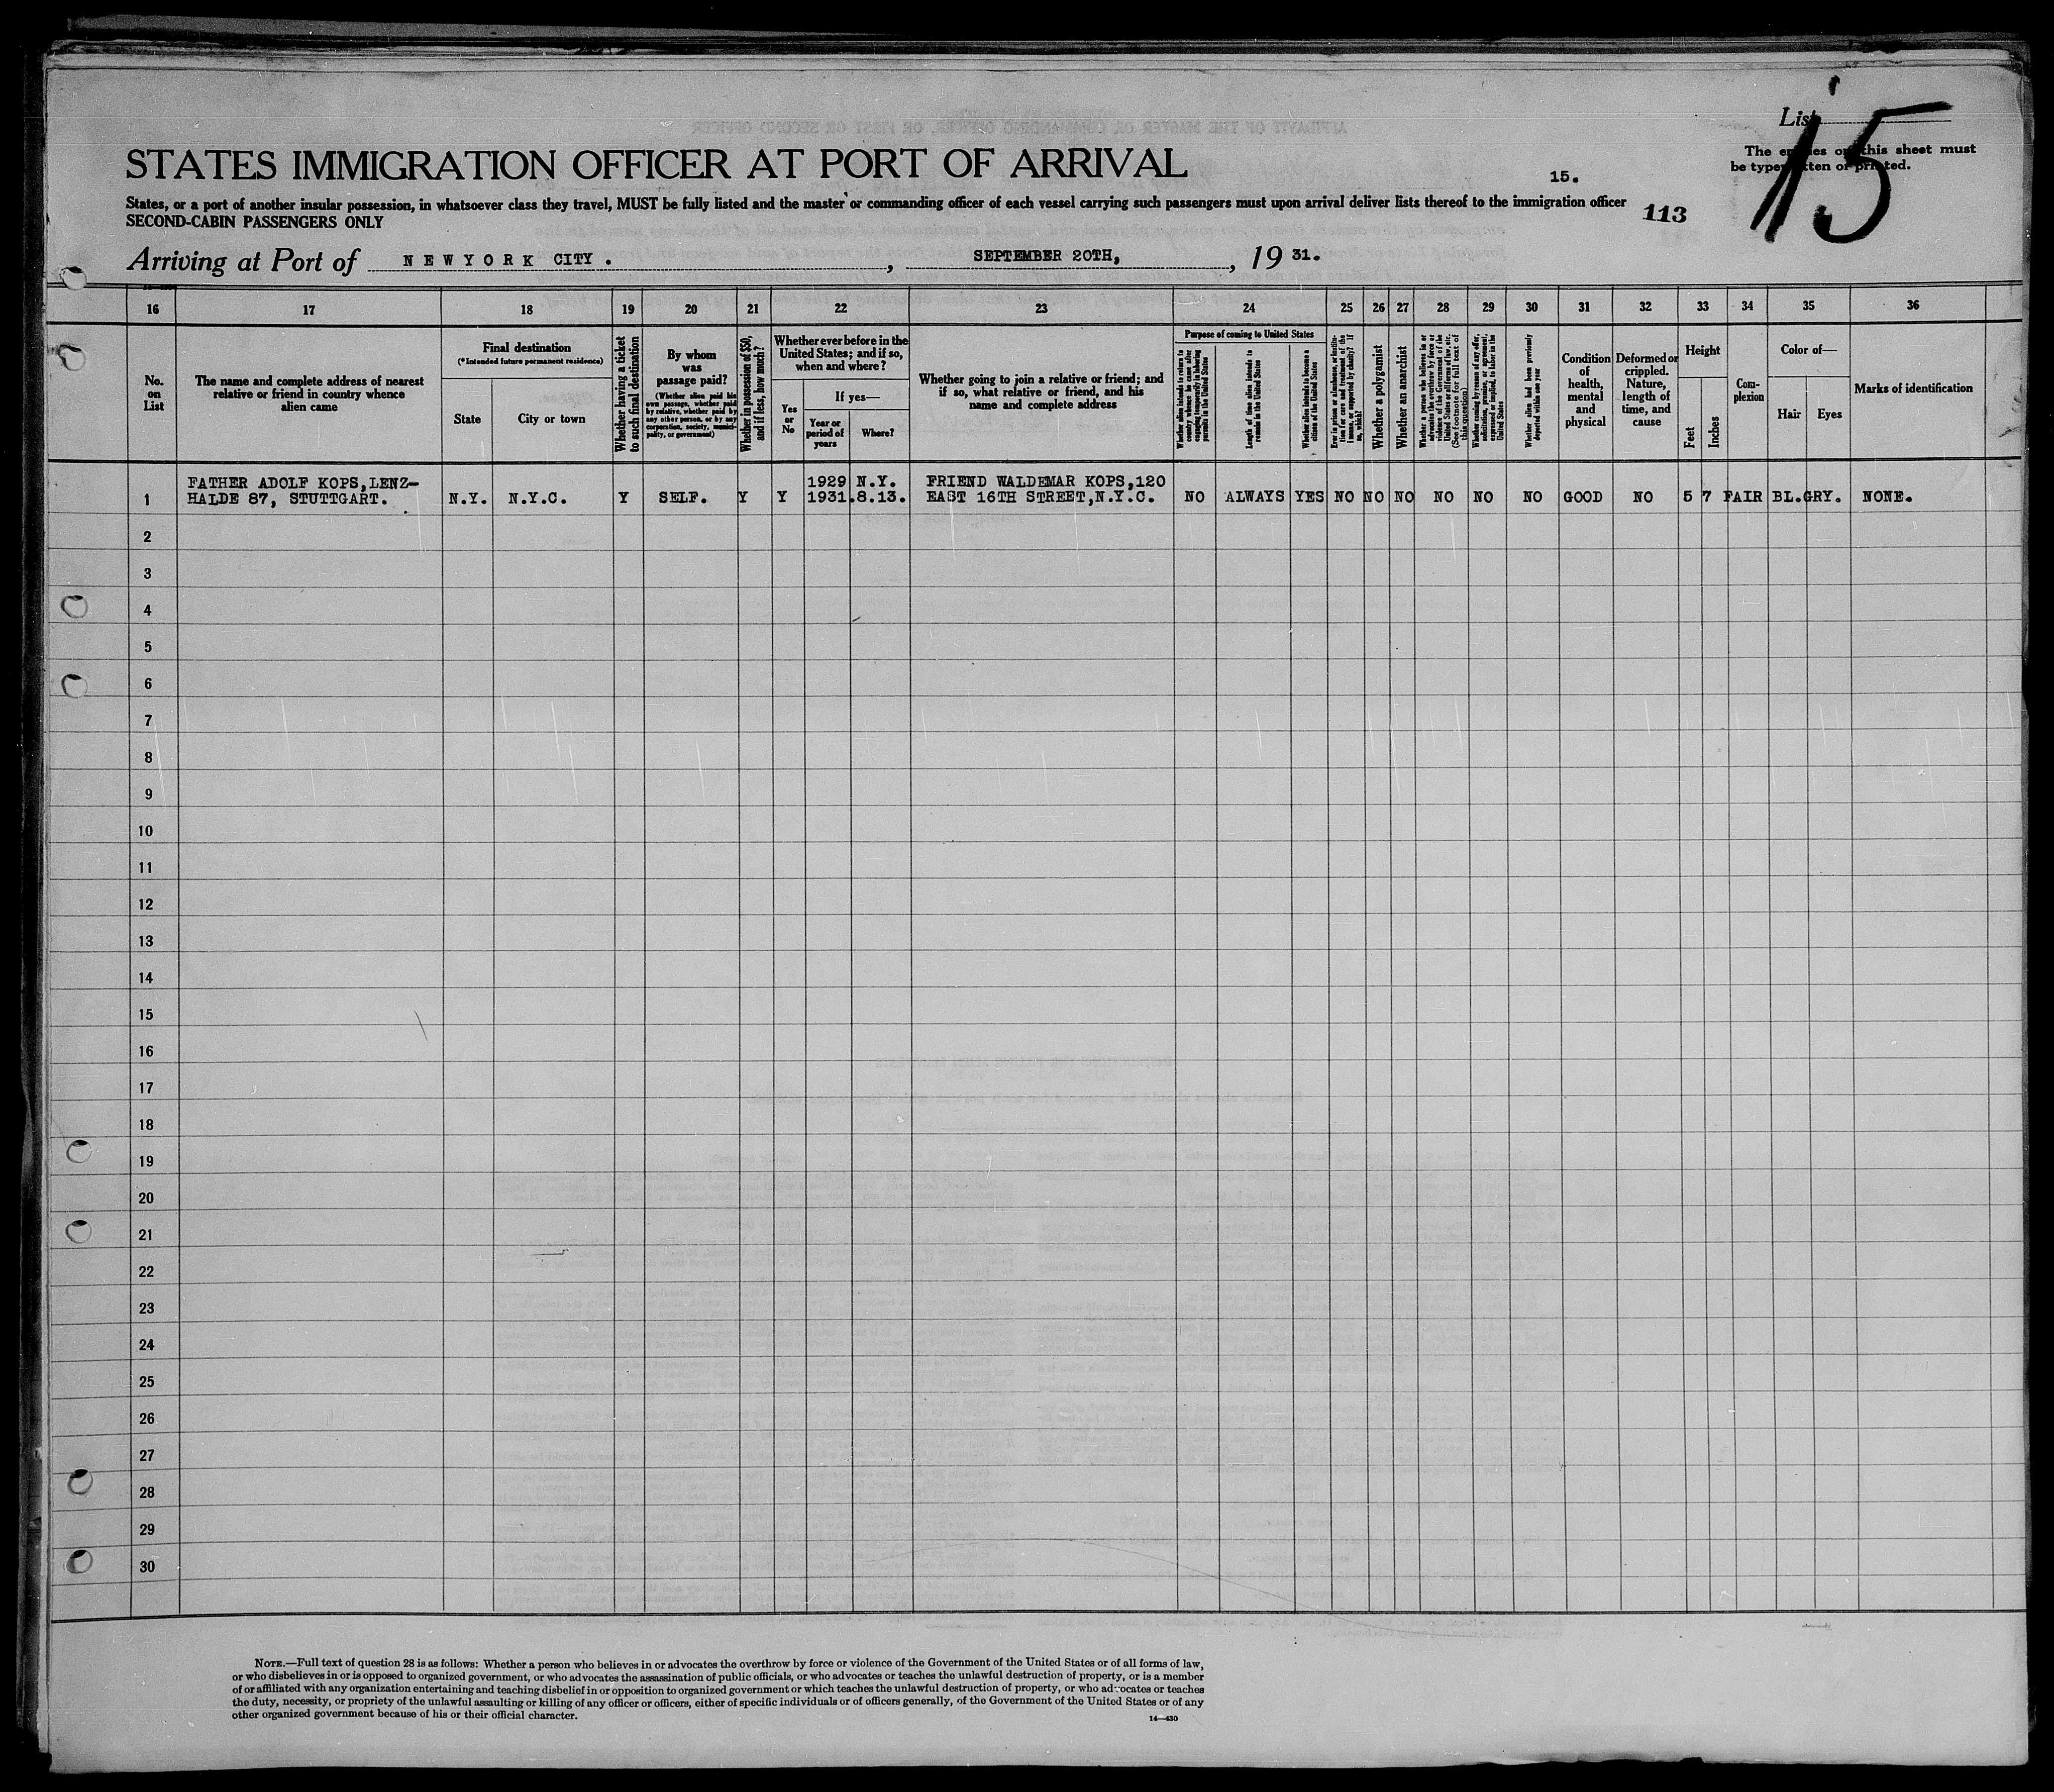 List
15
The entries on this sheet must
be typewritten or printed.
STATES IMMIGRATION OFFICER AT PORT OF ARRIVAL
15.
States, or a port of another insular possession, in whatsoever class they travel, MUST be fully listed and the master or commanding officer of each vessel carrying such passengers must upon arrival deliver lists thereof to the immigration officer
113
SECOND-CABIN PASSENGERS ONLY
Arriving at Port of NEW YORK CITY. , SEPTEMBER 20TH, , 19 31.
16 17 18 19 20 21 22 23 24 25 26 27 28 29 30 31 32 33 34 35 36
No.
on
List
The name and complete address of nearest
relative or friend in country whence
alien came
Final destination
(*Intended future permanent residence)
State
City or town
Whether having a ticket
to such final destination
By whom
was
passage paid?
(Whether alien paid his
own passage, whether paid
by relative, whether paid by
any other person, or by any
corporation, society, munici-
pality, or government)
Whether in possession of $50,
and if less, how much?
Whether ever before in the
United States; and if so,
when and where?
Yes
or
No
If yes—
Year or
period of
years
Where?
Whether going to join a relative or friend; and
if so, what relative or friend, and his
name and complete address
Purpose of coming to United States
Whether alien intends to return to
country whence he came after
engaging temporarily in laboring
pursuits in the United States
Length of time alien intends to
remain in the United States
Whether alien intends to become a
citizen of the United States
Ever in prison or almshouse, or institu-
tion for care and treatment of the
insane, or supported by charity? If
so, which?
Whether a polygamist
Whether an anarchist
Whether a person who believes in or
advocates the overthrow by force or
violence of the Government of the
United States or all forms of law, etc.
(See footnote for full text of
this question)
Whether coming by reason of any offer,
solicitation, promise, or agreement,
expressed or implied, to labor in the
United States
Whether alien had been previously
deported within one year
Condition
of
health,
mental
and
physical
Deformed or
crippled.
Nature,
length of
time, and
cause
Height
Feet
Inches
Com-
plexion
Color of—
Hair
Eyes
Marks of identification
FATHER ADOLF KOPS,LENZ- 1929 N.Y. FRIEND WALDEMAR KOPS,120
1 HALDE 87, STUTTGART. N.Y. N.Y.C. Y SELF. Y Y 1931.8.13. EAST 16TH STREET,N.Y.C. NO ALWAYS YES NO NO NO NO NO NO GOOD NO 5 7 FAIR BL.GRY. NONE.
2
3
4
5
6
7
8
9
10
11
12
13
14
15
16
17
18
19
20
21
22
23
24
25
26
27
28
29
30
NOTE.—Full text of question 28 is as follows: Whether a person who believes in or advocates the overthrow by force or violence of the Government of the United States or of all forms of law,
or who disbelieves in or is opposed to organized government, or who advocates the assassination of public officials, or who advocates or teaches the unlawful destruction of property, or is a member
of or affiliated with any organization entertaining and teaching disbelief in or opposition to organized government or which teaches the unlawful destruction of property, or who advocates or teaches
the duty, necessity, or propriety of the unlawful assaulting or killing of any officer or officers, either of specific individuals or of officers generally, of the Government of the United States or of any
other organized government because of his or their official character.
14—430